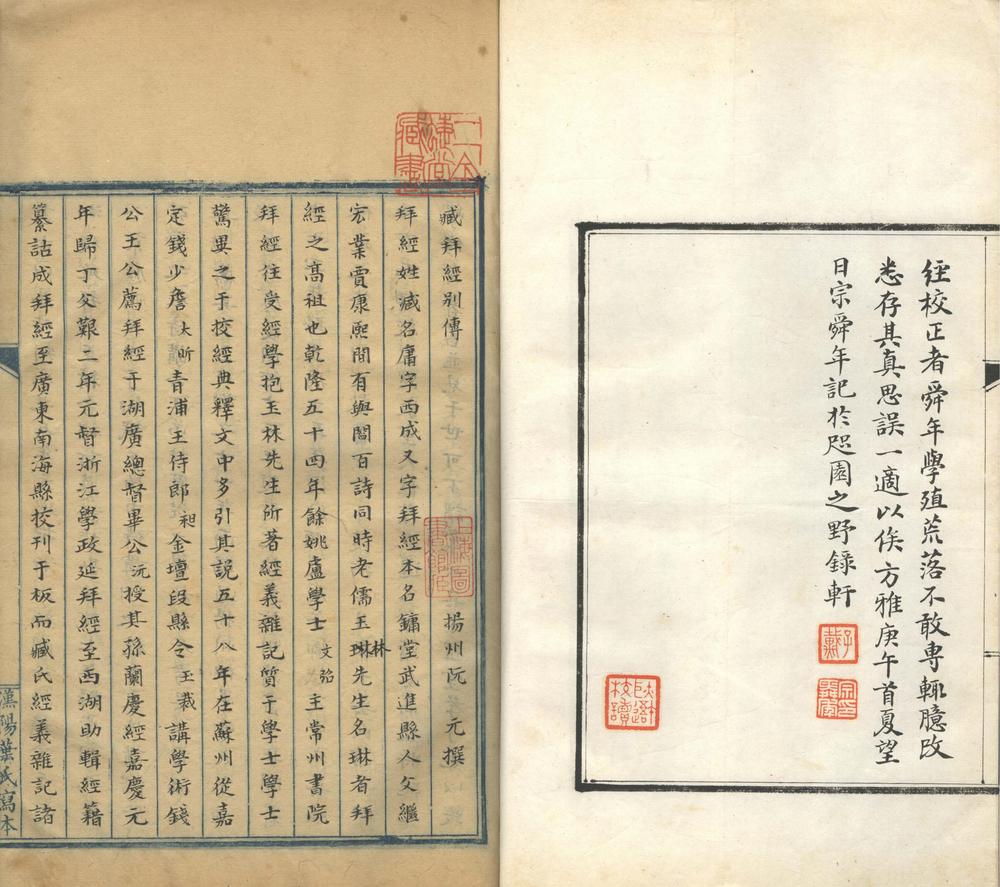 經校正者舜年學殖荒落不敢専輒臆改
悉存其真思誤一適以俟方雅庚午首夏望
日宗舜年記於咫園之野錄軒
子戴
二金蜨堂藏書
臧拜經別傳 揚州阮元撰
上海圖書館藏
拜經姓臧名庸字西成又字拜經本名鏞堂武進縣人父繼
宏業賈康熙間有與閻百詩同時老儒玉琳林先生名琳者拜
經之高祖也乾隆五十四年餘姚盧學士文弨主常州書院
拜經往受經學抱玉林先生所著經義雜記質于學士學士
驚異之于挍經典釋文中多引其説五十八年在蘇州從嘉
定錢少詹大昕青浦王侍郎昶金壇段縣令玉裁講學術錢
公王公薦拜經于湖廣總督畢公沅授其孫蘭慶經嘉慶元
年歸丁父艱二年元督浙江學政延拜經至西湖助輯經籍
纂詁成拜經至廣東南海縣挍刊于板而臧氏經義雜記諸
漢陽葉氏寫本